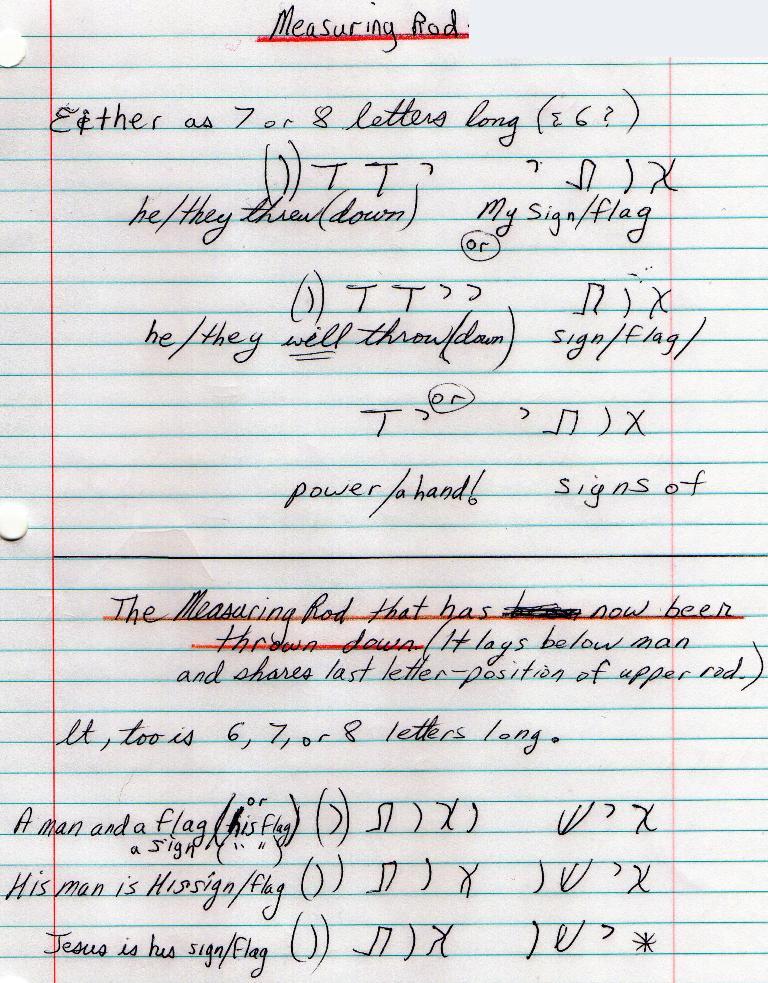 Measuring Rod
Either as 7 or 8 letters long (& 6?)
אותי ידד(ו)
he/they threw(down) My sign/flag
or
אות יידד(ו)
he/they will throw(down) sign/flag/
or
אותי יד
power/a hand! signs of
The Measuring Rod that has now been
thrown down. (It lays below man
and shares last letter-position of upper rod.)
It, too is 6, 7, or 8 letters long.
A man and a flag (or his flag) איש ואות(ו)
a sign (" ")
His man is His sign/flag אישו אות(ו)
Jesus is his sign/flag *ישו אות(ו)